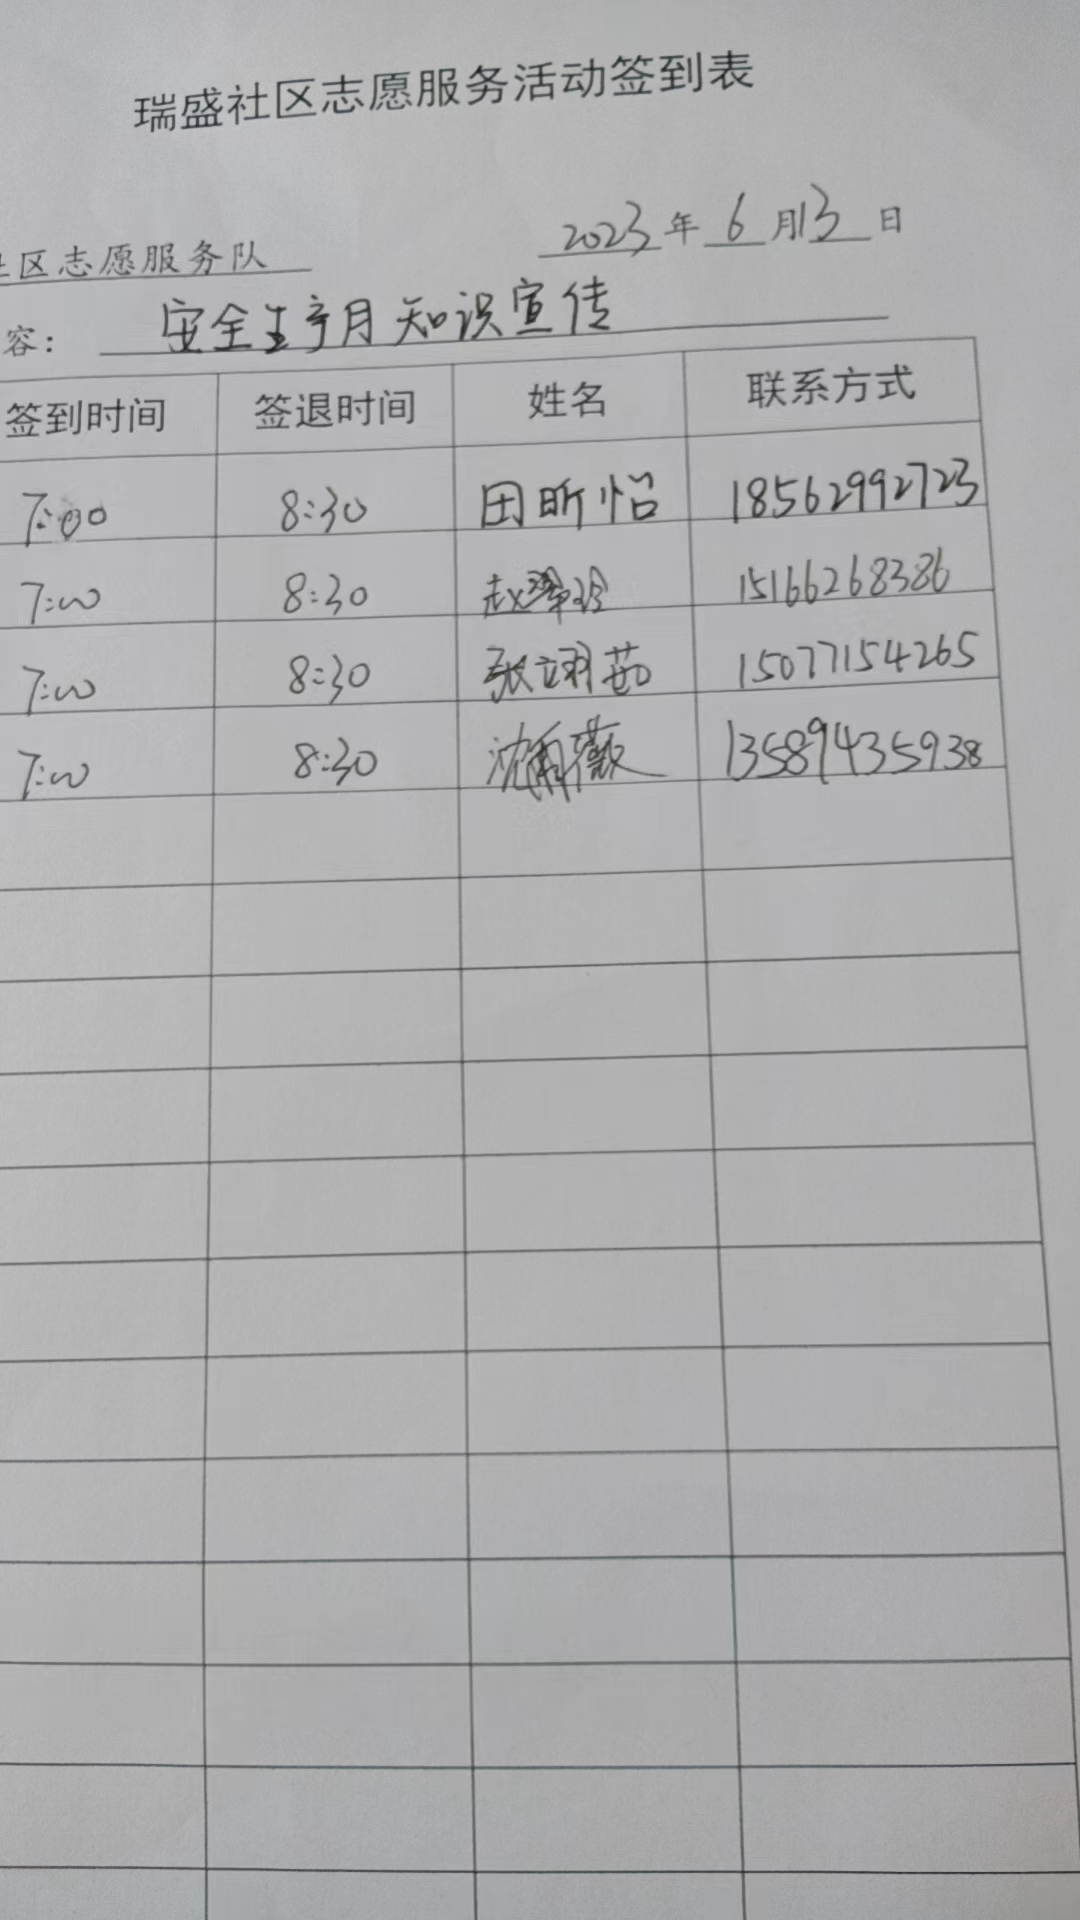 瑞盛社区志愿服务活动签到表
社区志愿服务队 2023年6月13日
容: 安全生产月知识宣传
签到时间 签退时间 姓名 联系方式
7:00 8:30 田昕怡 18562992723
7:00 8:30 赵 玲 15166268386
7:00 8:30 张翊茹 15077154265
7:00 8:30 沈雨薇 13589435938